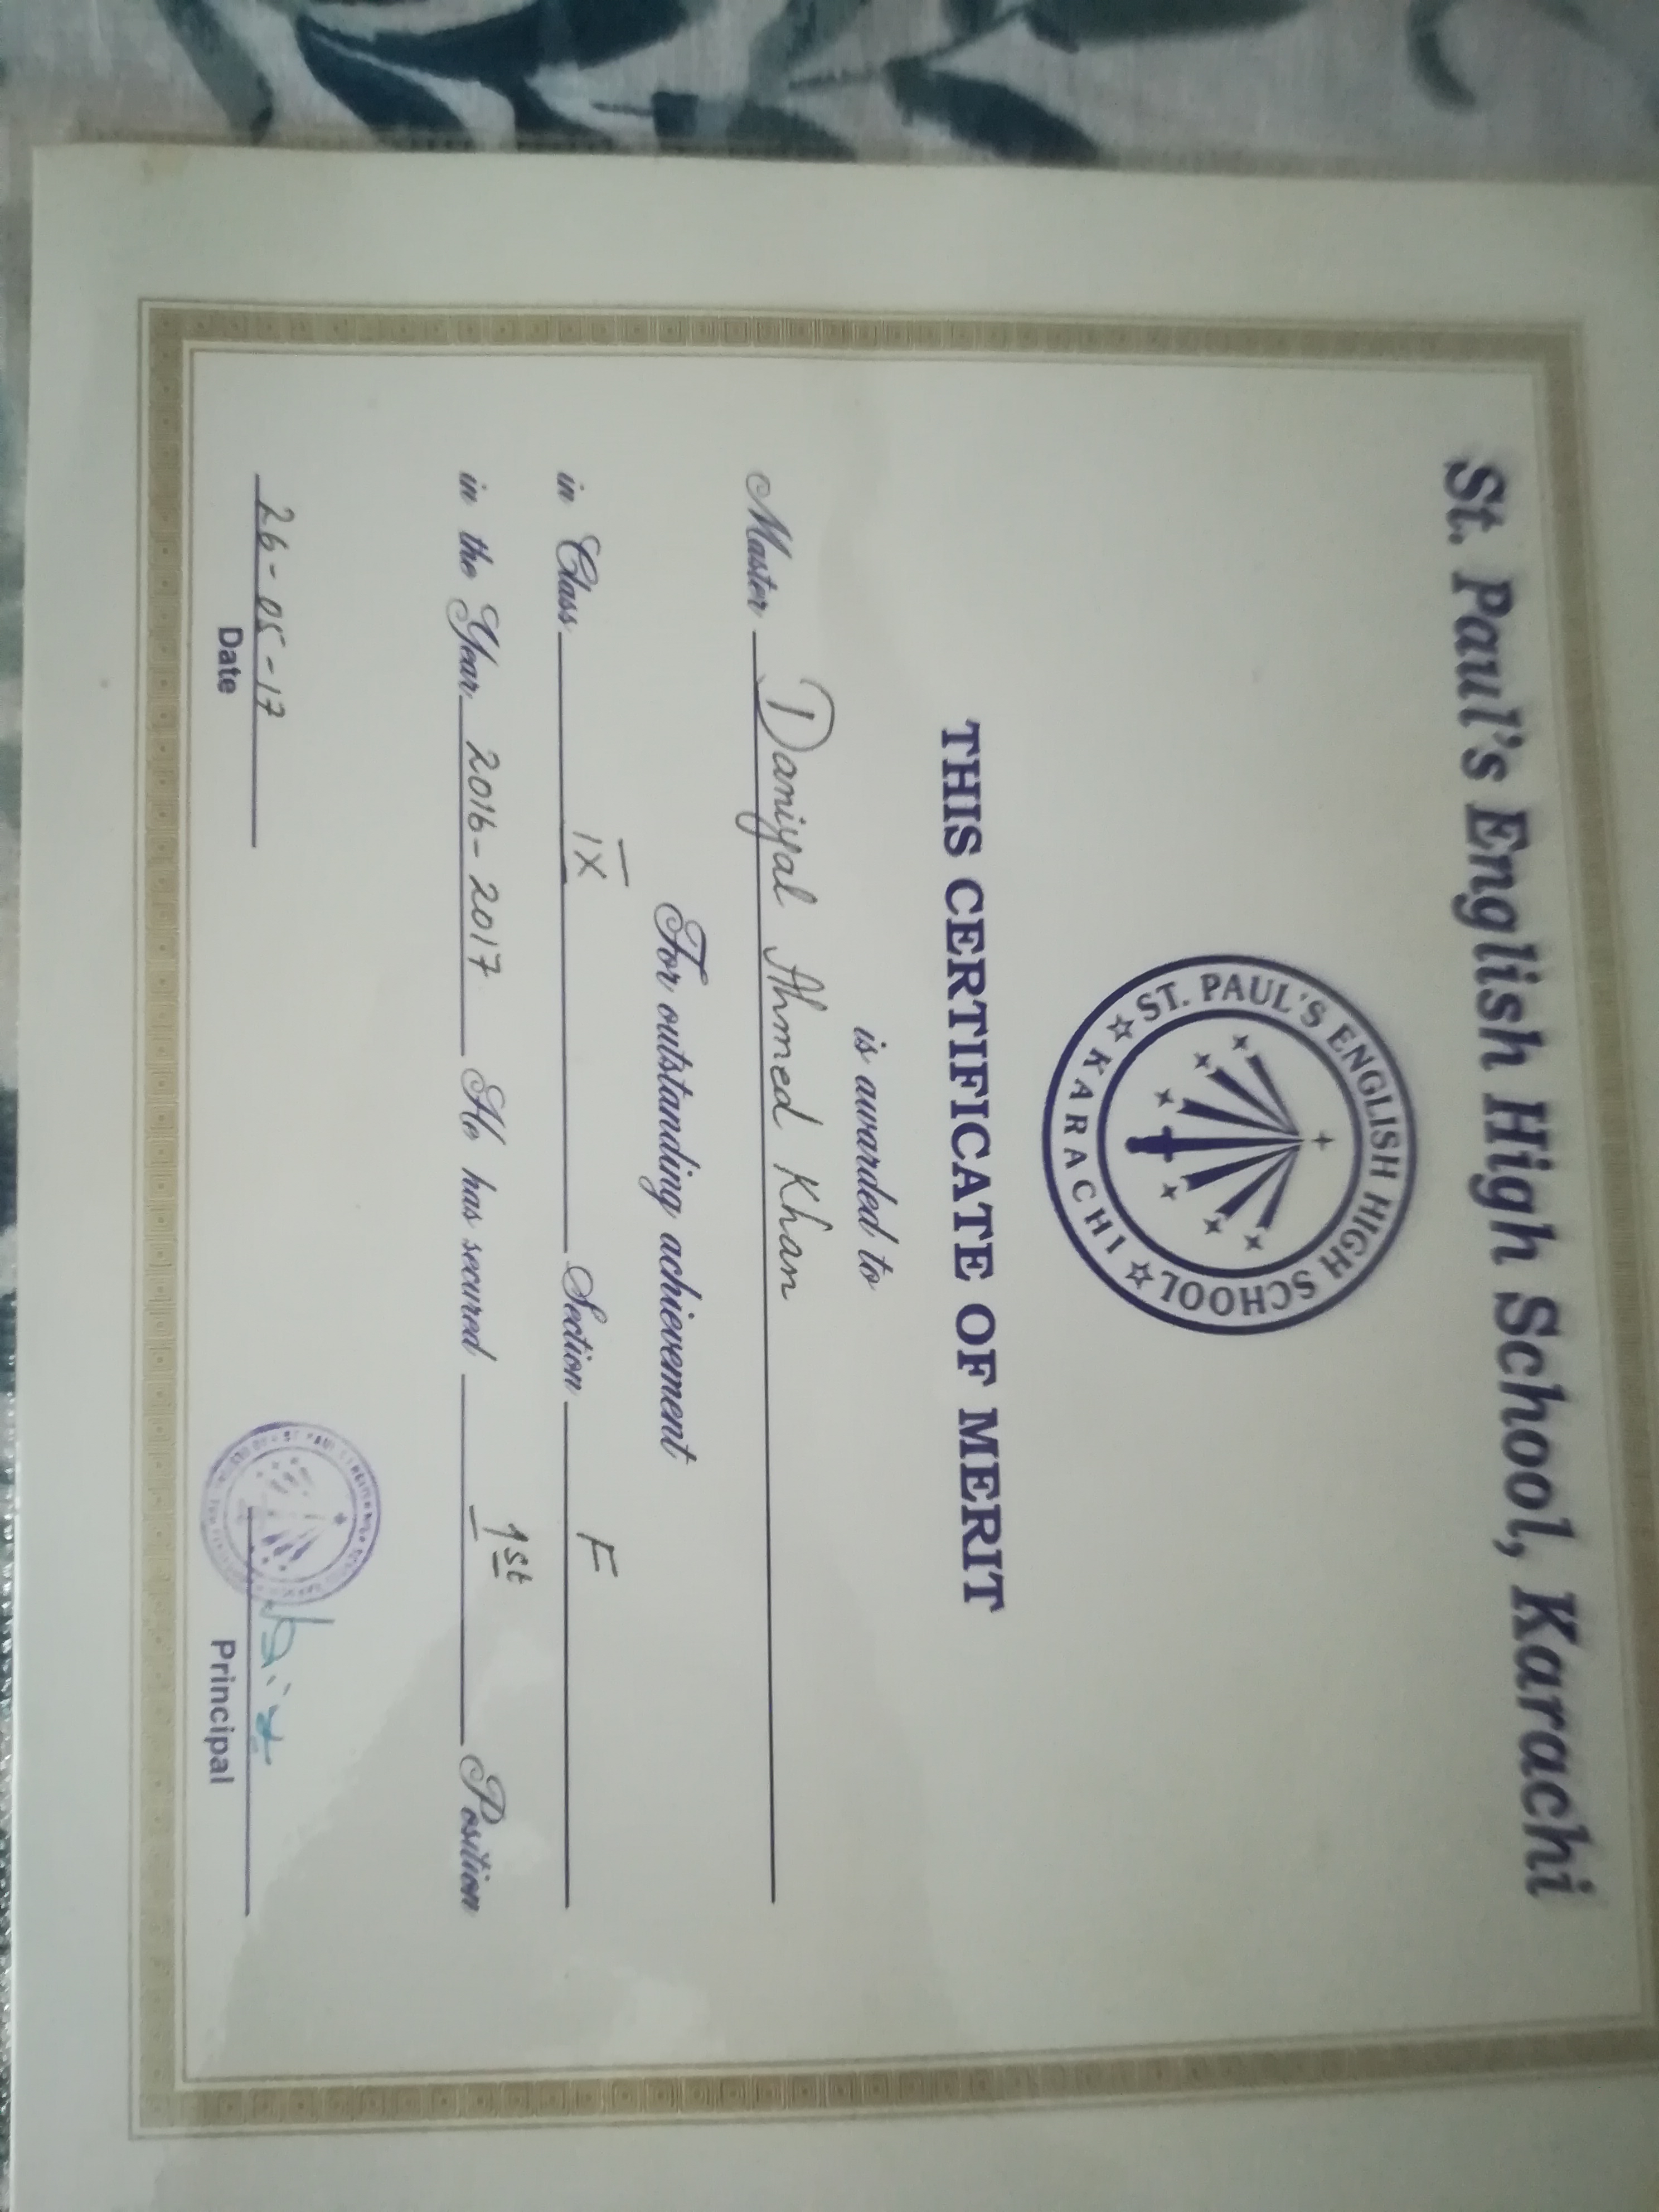 St. Paul's English High School, Karachi
ST. PAUL'S ENGLISH HIGH SCHOOL
KARACHI
THIS CERTIFICATE OF MERIT
is awarded to
Master Daniyal Ahmed Khan
For outstanding achievement
in Class IX Section F
in the Year 2016-2017 He has secured 1st Position
26-05-17
Date
Principal